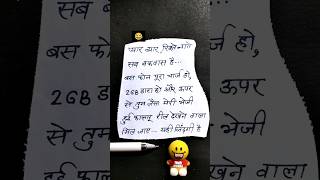 प्यार व्यार रिश्ते-नाते
सब बकवास है...
बस फोन पूरा चार्ज हो,
2GB डाटा हो और ऊपर
से तुम जैसा मेरी भेजी
हुई फालतू रील देखने वाला
मिल जाए - यही जिंदगी है